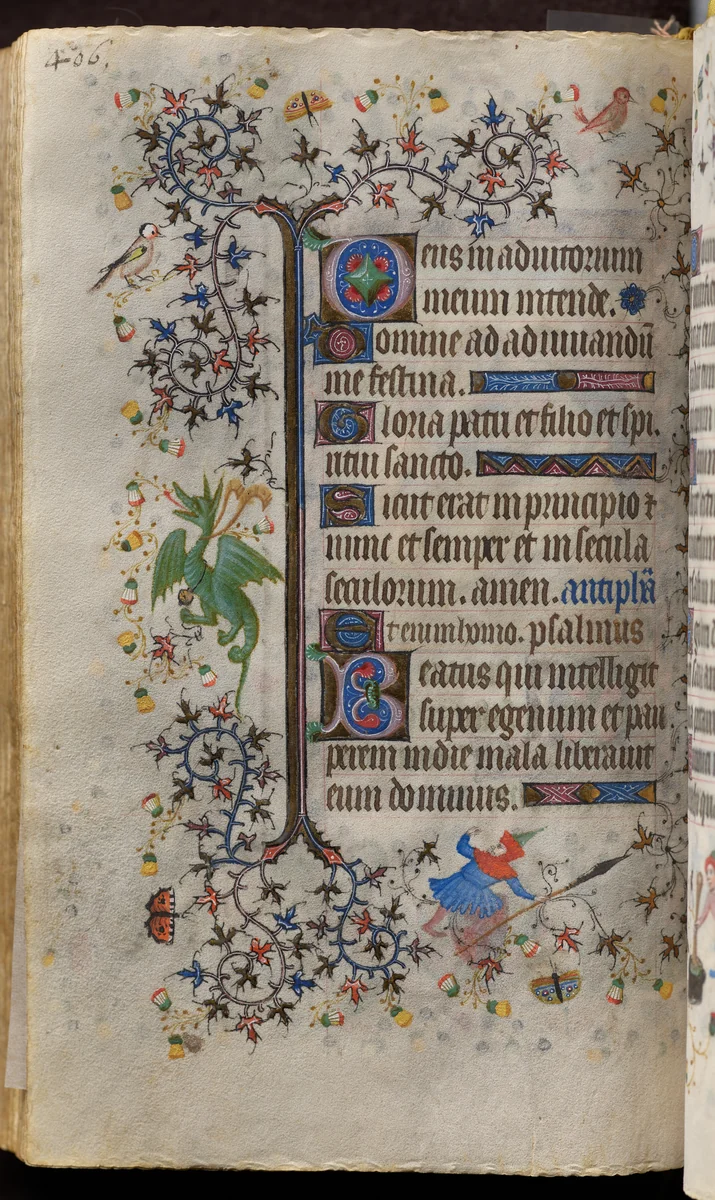 406.
Deus in adiutorium
meum intende.
Domine ad adiuuandū
me festina.
Gloria patri et filio et spi.
ritui sancto.
Sicut erat in principio ⁊
nunc et semper et in secula
seculorum. amen. antiphā
Etenim homo. psalmus
Beatus qui intelligit
super egenum et pau
perem in die mala liberauit
eum dominus.